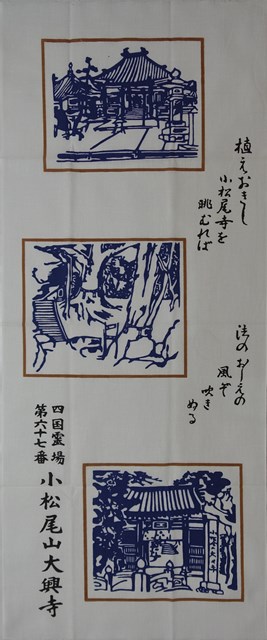 植えおきし
小松尾寺を
眺むれば
法のおしえの
風ぞ
吹きぬる
四国霊場
第六十七番
小松尾山大興寺